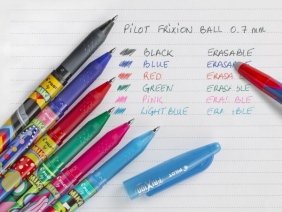 PILOT FRIXION BALL 0.7 mm
BLACK ERASABLE
BLUE ERASABLE
RED ERASA
GREEN ERASABLE
PINK ERASIBLE
LIGHT BLUE ERA BLE
PILOT FriXion